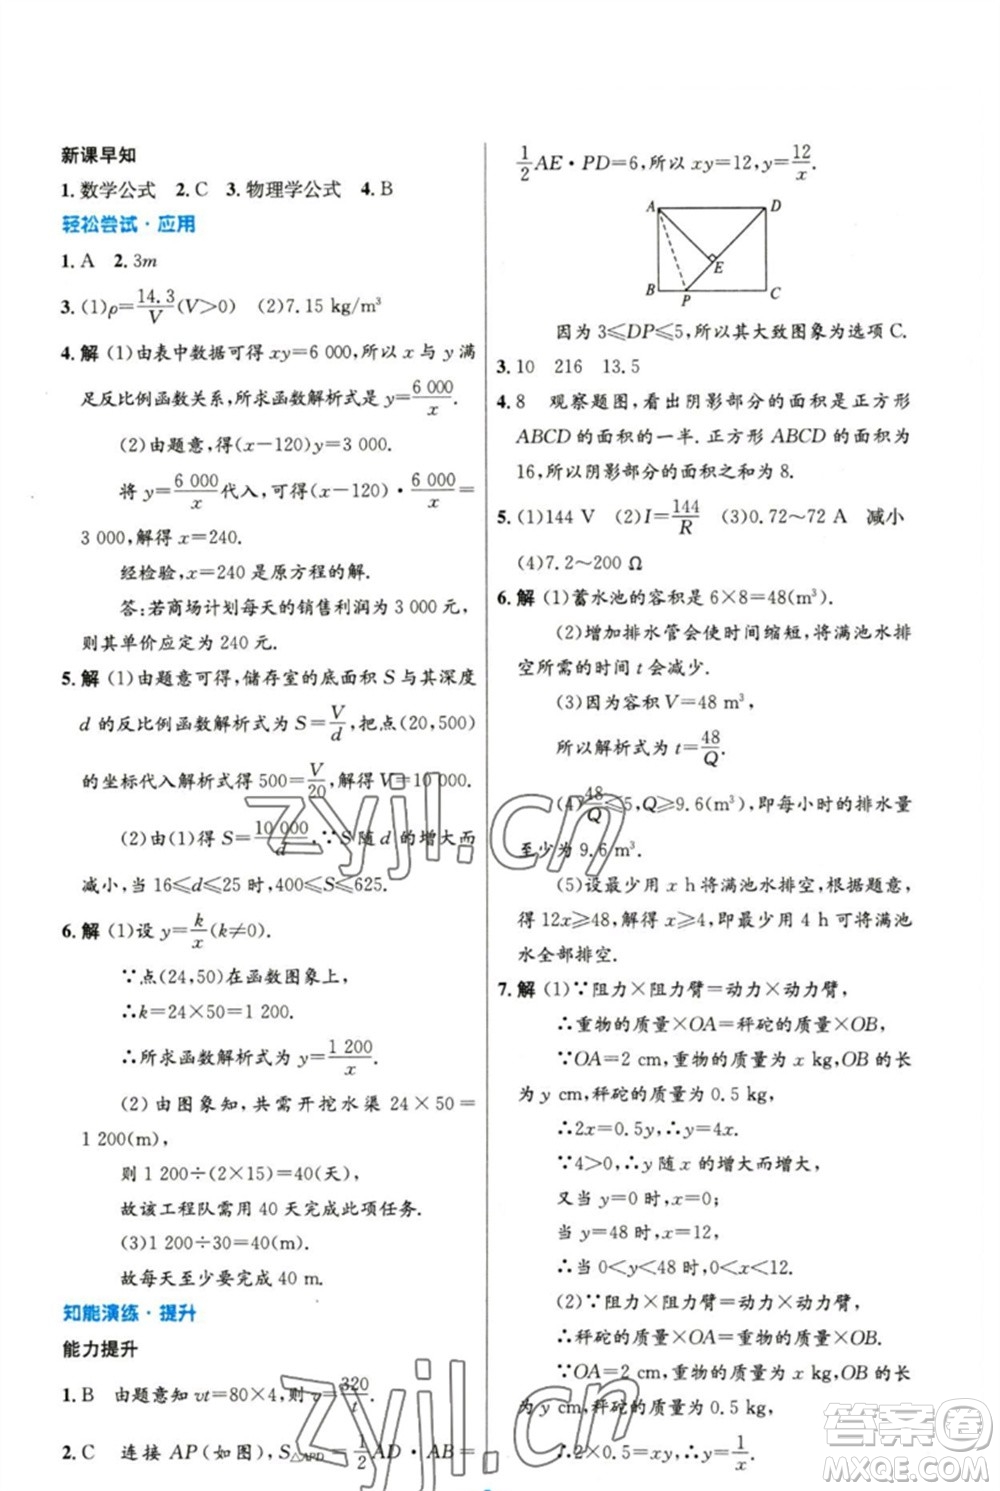 新课早知
1.数学公式 2.C 3.物理学公式 4.B
轻松尝试·应用
1.A 2.3m
3.(1)ρ=14.3/V(V>0) (2)7.15 kg/m³
4.解 (1)由表中数据可得 xy=6 000,所以 x 与 y 满
足反比例函数关系,所求函数解析式为 y=6 000/x.
(2)由题意,得(x-120)y=3 000.
将 y=6 000/x 代入,可得(x-120)·6 000/x=
3 000,解得 x=240.
经检验,x=240 是原方程的解.
答:若商场计划每天的销售利润为 3 000 元,
则其单价应定为 240 元.
5.解 (1)由题意可得,储存室的底面积 S 与其深度
d 的反比例函数解析式为 S=V/d,把点(20,500)
的坐标代入解析式得 500=V/20,解得 V=10 000.
(2)由(1)得 S=10 000/d.∵S 随 d 的增大而
减小,当 16≤d≤25 时,400≤S≤625.
6.解 (1)设 y=k/x(k≠0).
∵点(24,50)在函数图象上,
∴k=24×50=1 200.
∴所求函数解析式为 y=1 200/x.
(2)由图象知,共需开挖水渠 24×50=
1 200(m),
则 1 200÷(2×15)=40(天),
故该工程队需用 40 天完成此项任务.
(3)1 200÷30=40(m).
故每天至少要完成 40 m.
知能演练·提升
能力提升
1.B 由题意知 vt=80×4,则 v=320/t.
2.C 连接 AP(如图),S△APD=1/2AD·AB=
1/2AE·PD=6,所以 xy=12,y=12/x.
A D
E
B P C
因为 3≤DP≤5,所以其大致图象为选项 C.
3.10 216 13.5
4.8 观察题图,看出阴影部分的面积是正方形
ABCD 的面积的一半.正方形 ABCD 的面积为
16,所以阴影部分的面积之和为 8.
5.(1)144 V (2)I=144/R (3)0.72～72 A 减小
(4)7.2～200 Ω
6.解 (1)蓄水池的容积是 6×8=48(m³).
(2)增加排水管会使时间缩短,将满池水排
空所需的时间 t 会减少.
(3)因为容积 V=48 m³,
所以解析式为 t=48/Q.
(4)48/Q≤5,Q≥9.6(m³),即每小时的排水量
至少为 9.6 m³.
(5)设最少用 x h 将满池水排空,根据题意,
得 12x≥48,解得 x≥4,即最少用 4 h 可将满池
水全部排空.
7.解 (1)∵阻力×阻力臂=动力×动力臂,
∴重物的质量×OA=秤砣的质量×OB,
∵OA=2 cm,重物的质量为 x kg,OB 的长
为 y cm,秤砣的质量为 0.5 kg,
∴2x=0.5y,∴y=4x.
∵4>0,∴y 随 x 的增大而增大,
又当 y=0 时,x=0;
当 y=48 时,x=12,
∴当 0<y<48 时,0<x<12.
(2)∵阻力×阻力臂=动力×动力臂,
∴秤砣的质量×OA=重物的质量×OB.
∵OA=2 cm,重物的质量为 x kg,OB 的长
为 y cm,秤砣的质量为 0.5 kg,
∴2×0.5=xy,∴y=1/x.
zyjl.cn
zyjl.cn
答案圈
MXQE.COM